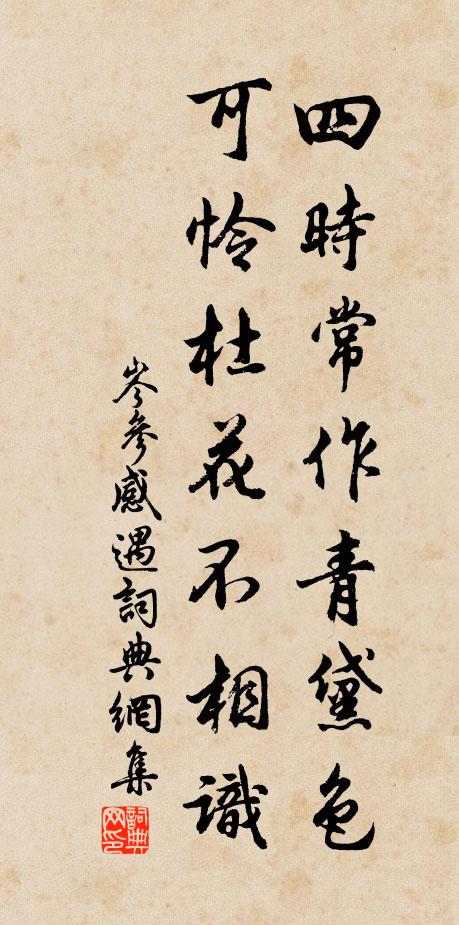 四時常作青黛色
可憐杜花不相識
岑參感遇詞典網集
詞典網印